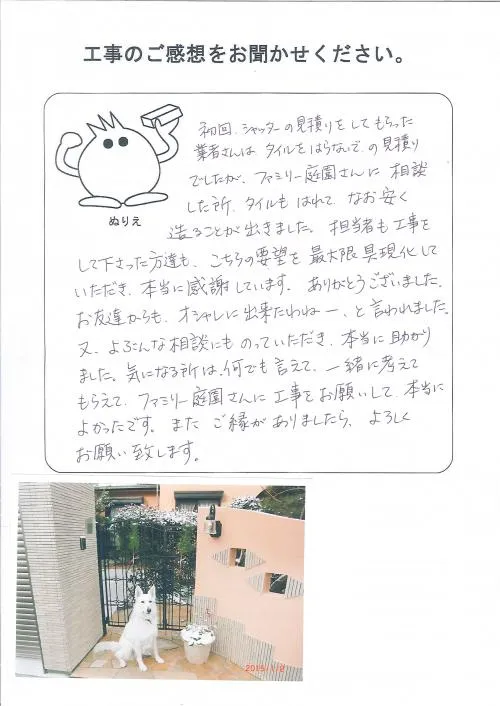 工事のご感想をお聞かせください。
ぬりえ
初回、シャッターの見積りをしてもらった
業者さんは タイルをはらないで、の見積り
でしたが、ファミリー庭園さんに 相談
した所、タイルも はれて、なお安く
造ることが出きました。担当者も工事を
して下さった方達も、こちらの要望を 最大限 具現化して
いただき、本当に感謝しています。ありがとうございました。
お友達からも、オシャレに出来たわねー、と言われました。
又、よぶんな相談にも のっていただき、本当に助かり
ました。気になる所は、何でも言えて、一緒に考えて
もらえて、ファミリー庭園さんに 工事をお願いして、本当に
よかったです。また ご縁がありましたら、よろしく
お願い致します。
2015/1/2